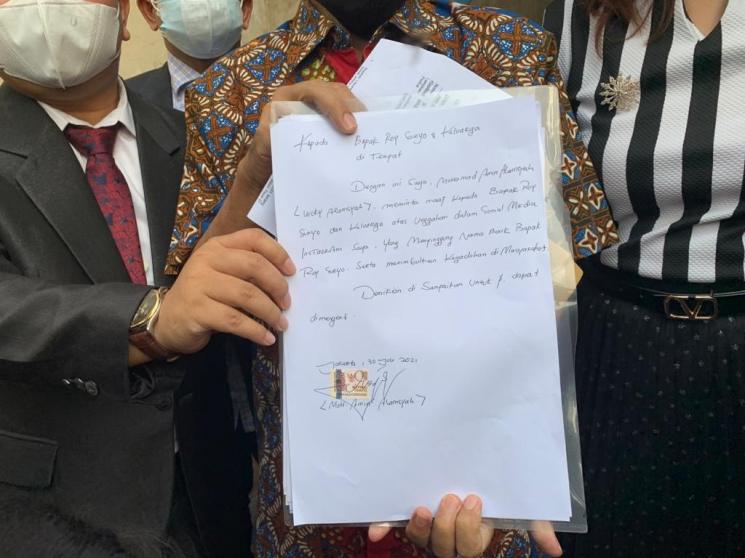 Kepada Bapak Roy Suryo & Keluarga
di Tempat
Dengan ini Saya, Muhammad Amin Alamsyah
(Lucky Alamsyah), meminta maaf kepada Bapak Roy
Suryo dan Keluarga atas Unggahan dalam Sosial Media
Instagram Saya, Yang Menyinggung Nama Baik Bapak
Roy Suryo. Serta menimbulkan Kegaduhan di Masyarakat
Demikian di Sampaikan Untuk dapat
Jakarta, 30 2021
Amin Alamsyah